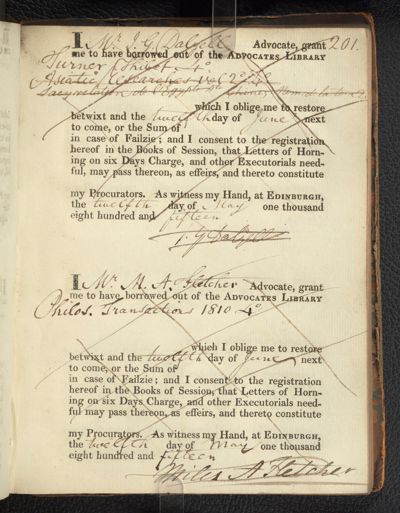 201.
I, Mr J. G. Dalyell Advocate, grant
me to have borrowed out of the ADVOCATES LIBRARY
Turner 4o
Asiatic Researches vol 2
which I oblige me to restore
betwixt and the twelfth day of June next
to come, or the Sum of
in case of Failzie; and I consent to the registration
hereof in the Books of Session, that Letters of Horn-
ing on six Days Charge, and other Executorials need-
ful, may pass thereon, as effeirs, and thereto constitute
my Procurators. As witness my Hand, at EDINBURGH,
the twelfth day of May one thousand
eight hundred and fifteen
J. G. Dalyell
I, Mr. M. A. Fletcher Advocate, grant
me to have borrowed out of the ADVOCATES LIBRARY
Philos. Transactions 1810 4o
which I oblige me to restore
betwixt and the twelfth day of June next
to come, or the Sum of
in case of Failzie; and I consent to the registration
hereof in the Books of Session, that Letters of Horn-
ing on six Days Charge, and other Executorials need-
ful may pass thereon, as effeirs, and thereto constitute
my Procurators. As witness my Hand, at EDINBURGH,
the twelfth day of May one thousand
eight hundred and fifteen
Miles A Fletcher